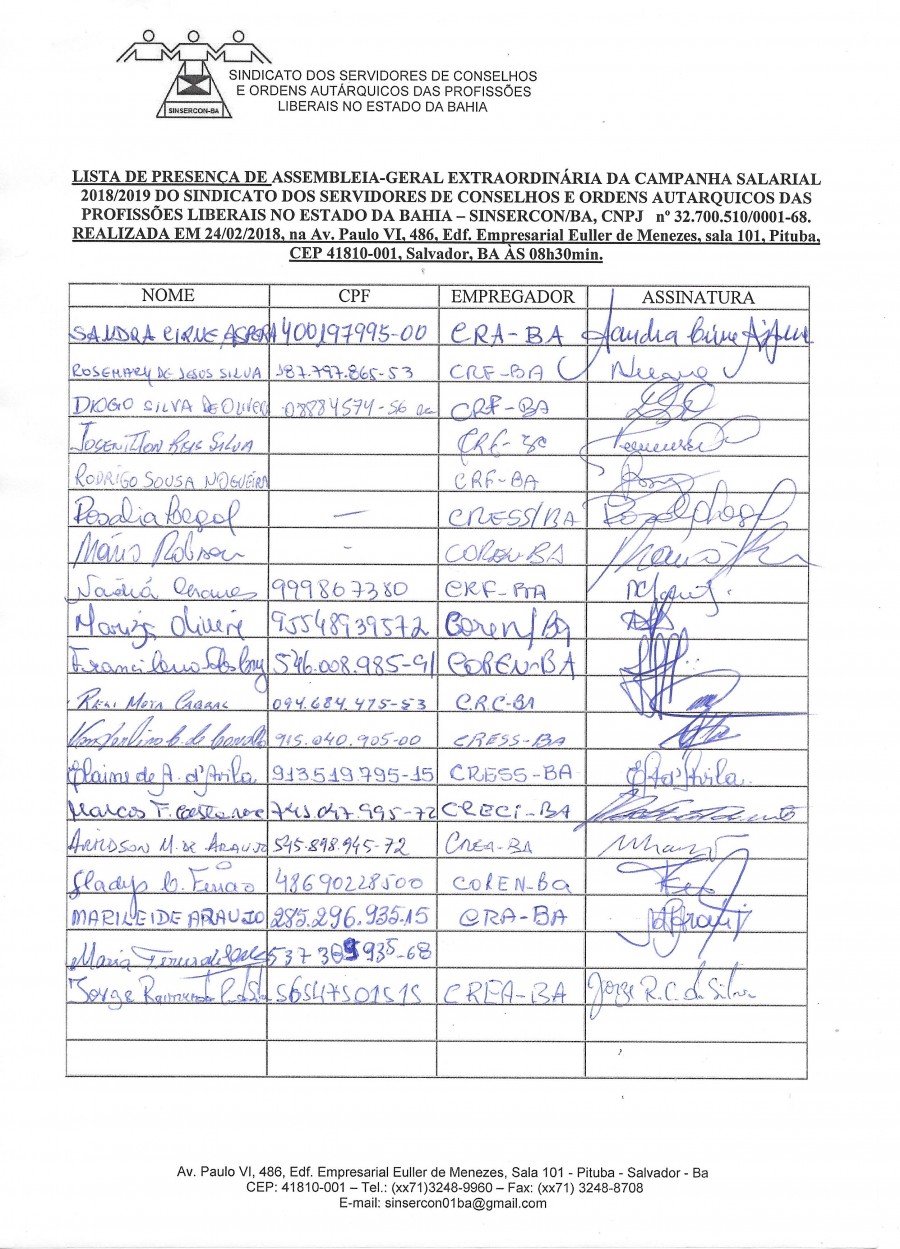 SINSERCON-BA
SINDICATO DOS SERVIDORES DE CONSELHOS
E ORDENS AUTÁRQUICOS DAS PROFISSÕES
LIBERAIS NO ESTADO DA BAHIA
LISTA DE PRESENÇA DE ASSEMBLEIA-GERAL EXTRAORDINÁRIA DA CAMPANHA SALARIAL
2018/2019 DO SINDICATO DOS SERVIDORES DE CONSELHOS E ORDENS AUTARQUICOS DAS
PROFISSÕES LIBERAIS NO ESTADO DA BAHIA – SINSERCON/BA, CNPJ nº 32.700.510/0001-68.
REALIZADA EM 24/02/2018, na Av. Paulo VI, 486, Edf. Empresarial Euller de Menezes, sala 101, Pituba,
CEP 41810-001, Salvador, BA ÀS 08h30min.
NOME CPF EMPREGADOR ASSINATURA
SANDRA CIRNE 400197995-00 CRA-BA Sandra Cirne
ROSEMARY DE JESUS SILVA 187.797.865-53 CRF-BA
DIOGO SILVA DE OLIVEI 08884574-56 CRF-BA
JOSENILTON REIS SILVA
RODRIGO SOUSA NOGUEIRA CRF-BA
Rosalia — CRESS/BA
Mário Robson - COREN-BA
999867380 CRF-BA
95548939572 Coren/Ba
546.008.985-91 COREN-BA
MOTA CABRAL 094.684.475-53 C.R.C-BA
915.040.905-00 CRESS-BA
Elaine de A. d'Avila 913519795-15 CRESS-BA d'Avila
Marcos F. 745.047.995-72 CRECI-BA
M. DE ARAUJO 545.898.945-72 CREA-BA
Gladys C. 48690228500 COREN-Ba
MARILEIDE ARAUJO 285.296.935.15 CRA-BA
Maria 935-68
Jorge Raimundo 56547501515 CREA-BA Jorge R.C. da Silva
Av. Paulo VI, 486, Edf. Empresarial Euller de Menezes, Sala 101 - Pituba - Salvador - Ba
CEP: 41810-001 – Tel.: (xx71)3248-9960 – Fax: (xx71) 3248-8708
E-mail: sinsercon01ba@gmail.com